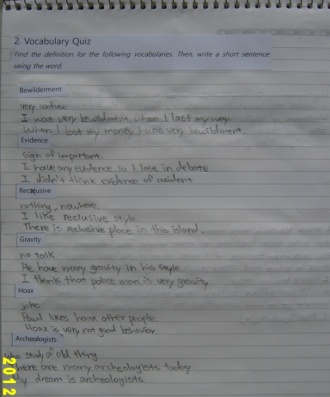 2. Vocabulary Quiz
Find the definition for the following vocabularies. Then, write a short sentence
using the word.
Bewilderment
very confuse
I was very bewildment when I lost my way.
When I lost my money I was very bewildment.
Evidence
Sign of important.
I have any evidence so I lose in debate
I didn't think evidence of accident
Reclusive
nothing, nowhere.
I like reclusive style.
There is reclusive place in this island.
Gravity
no talk
He have many gravity in his style.
I think that police man is very gravity
Hoax
joke
Paul likes hoax other people.
Hoax is very not good behavior.
Archeologists
study of old thing
There are many archeologists today
My dream is archeologists.
2012